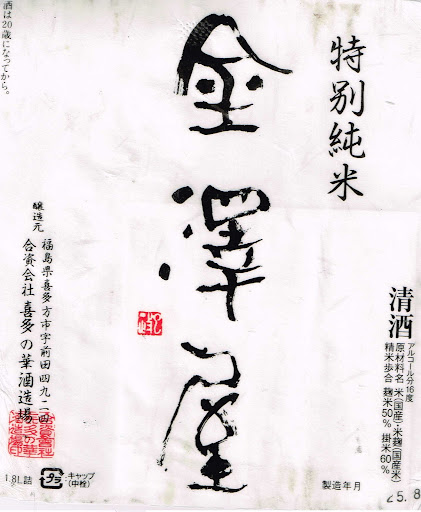 特別純米
金澤屋
清酒
アルコール分16度
原材料名 米(国産)・米麹(国産米)
精米歩合 麹米50% 掛米60%
製造年月
25.8
酒は20歳になってから。
醸造元
福島県喜多方市字前田四九二四
合資会社 喜多の華酒造場
1.8L詰
プラ
キャップ
(中栓)